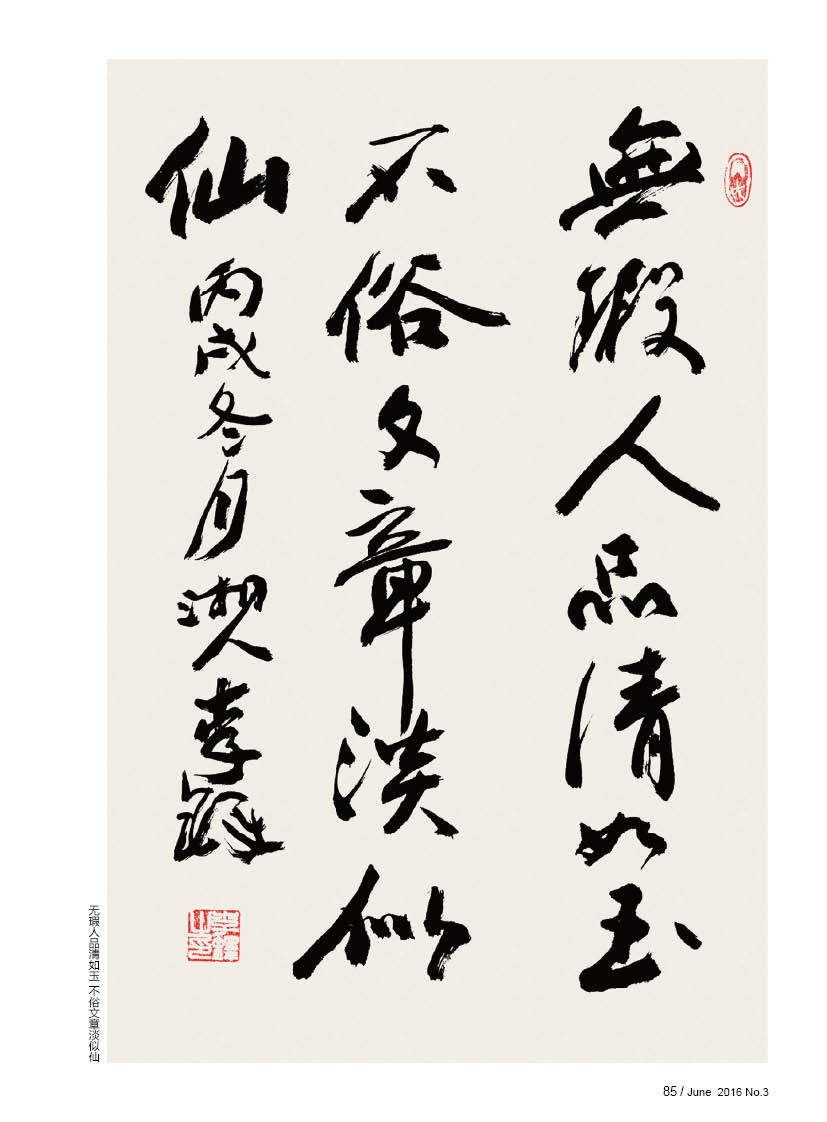 無瑕人品清如玉
不俗文章淡似
仙
丙戌冬月湘人李鐸
李鐸之印
无瑕人品清如玉 不俗文章淡似仙
85 / June 2016 No.3